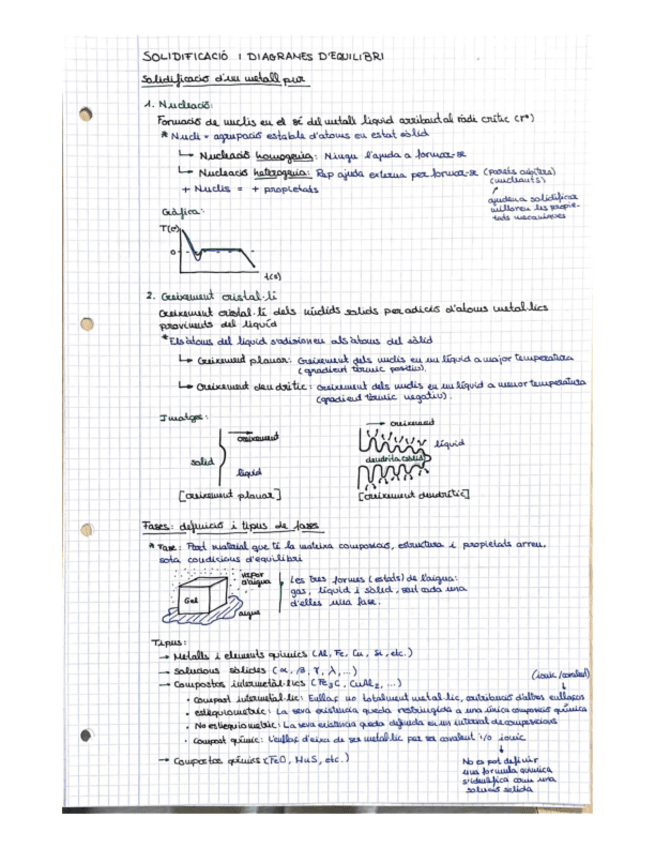 SOLIDIFICACIÓ I DIAGRAMES D'EQUILIBRI
Solidificació d'un metall pur
1. Nucleació:
Formació de nuclis en el sí del metall líquid arribant al ràdi crític (r*)
* Nucli = agrupació estable d'àtoms en estat sòlid
↳ Nucleació homogenia: Ningu l'ajuda a formar-se
↳ Nucleació heterogenia: Rep ajuda externa per formar-se (parets
(nucleants)
+ Nuclis = + propietats
ajuden a solidificar
milloren les propie-
tats mecàniques
Gràfica:
T(c)
0
t(s)
2. Creixement cristal·lí
Creixement cristal·lí dels núclids sòlids per adició d'atoms metal·lics
provinents del líquid
* Els àtoms del líquid s'adisionen als àtoms del sòlid
↳ Creixement planar: Creixement dels nuclis en un líquid a major temperatura
(gradient tèrmic positiu).
↳ Creixement dendrític: creixement dels nuclis en un líquid a menor temperatura
(gradient tèrmic negatiu).
Imatges:
creixement
sòlid
líquid
[creixement planar]
creixement
líquid
dendrita
[creixement dendrític]
Fases: definició i tipus de fases
* Fase: Part material que té la mateixa composició, estructura i propietats arreu,
sota condicions d'equilibri
vapor
d'aigua
Gel
aigua
Les tres formes (estats) de l'aigua:
gas, líquid i sòlid, sent cada una
d'elles una fase.
Tipus:
→ Metalls i elements químics (Al, Fe, Cu, Si, etc.)
→ Solucions sòlides (α, β, γ, λ, ...)
→ Compostos intermetàl·lics (Fe3C, CuAl2, ...)
(ionic/covalent)
• Compost intermetal·lic: Enllaç no totalment metal·lic, contribució d'altres enllaços
• estequiometric: La seva existencia queda restringida a una única composició química
• No estequiometric: La seva existencia queda definida en un interval de composicions
• Compost químic: L'enllaç deixa de ser metal·lic per ser covalent i/o ionic
→ Compostos químics (FeO, MnS, etc.)
No es pot definir
una formula química
s'identifica com una
solució sòlida